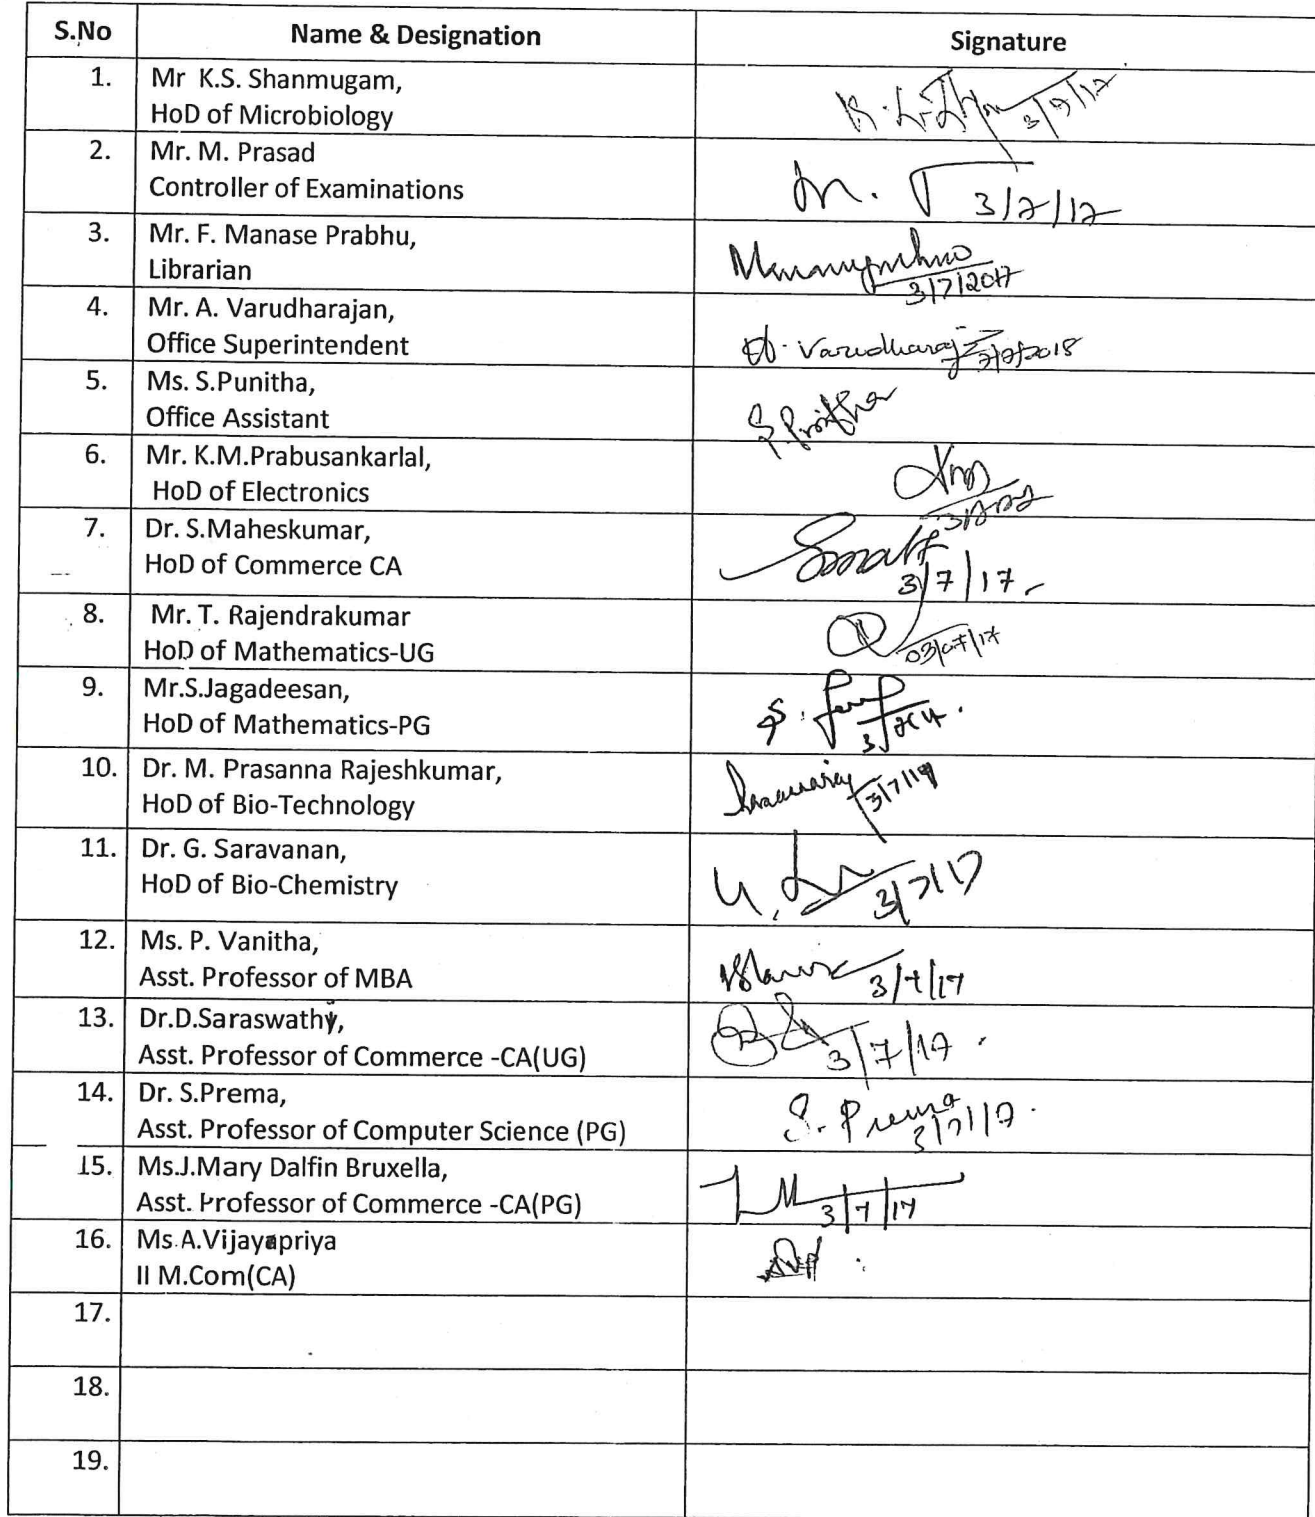 S.No Name & Designation Signature
1. Mr K.S. Shanmugam,
HoD of Microbiology
3/7/17
2. Mr. M. Prasad
Controller of Examinations
M. 3/7/17
3. Mr. F. Manase Prabhu,
Librarian
3/7/2017
4. Mr. A. Varudharajan,
Office Superintendent
A. Varudharaj 3/7/2018
5. Ms. S.Punitha,
Office Assistant
6. Mr. K.M.Prabusankarlal,
HoD of Electronics
7. Dr. S.Maheskumar,
HoD of Commerce CA
3/7/17
8. Mr. T. Rajendrakumar
HoD of Mathematics-UG
03/07/17
9. Mr.S.Jagadeesan,
HoD of Mathematics-PG
S.
10. Dr. M. Prasanna Rajeshkumar,
HoD of Bio-Technology
11. Dr. G. Saravanan,
HoD of Bio-Chemistry
3/7/17
12. Ms. P. Vanitha,
Asst. Professor of MBA
3/7/17
13. Dr.D.Saraswathy,
Asst. Professor of Commerce -CA(UG)
3/7/17
14. Dr. S.Prema,
Asst. Professor of Computer Science (PG)
S. Prema
3/7/17
15. Ms.J.Mary Dalfin Bruxella,
Asst. Professor of Commerce -CA(PG)
3/7/17
16. Ms.A.Vijayapriya
II M.Com(CA)
17.
18.
19.